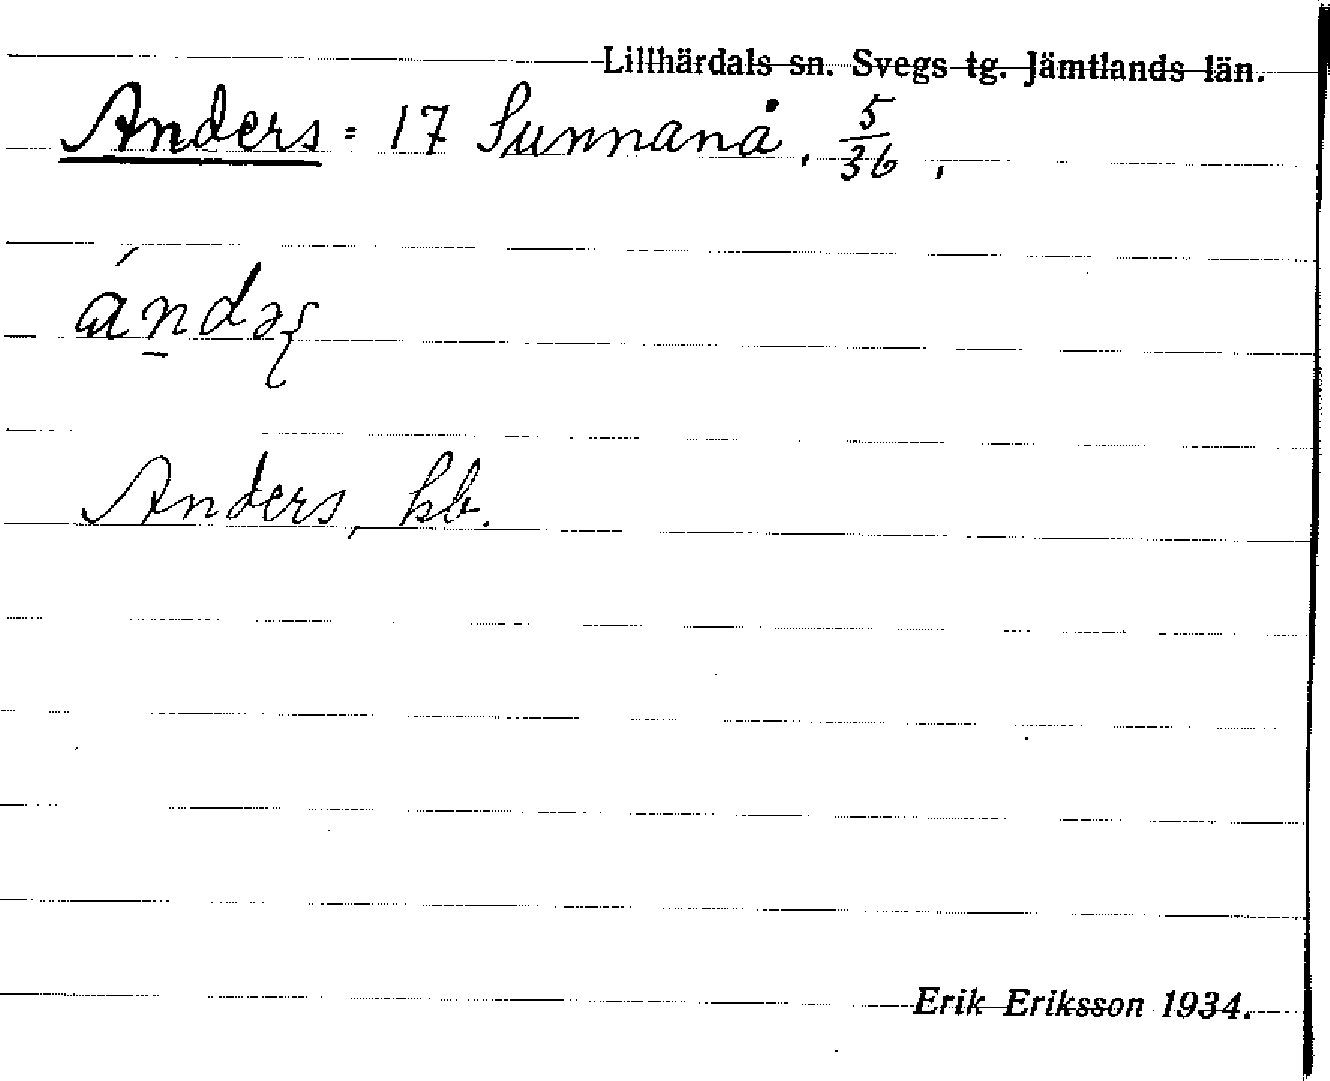 Lillhärdals sn. Svegs tg. Jämtlands län.
Anders = 17 Sunnanå, 5/36,
Anders, kb.
Erik Eriksson 1934.